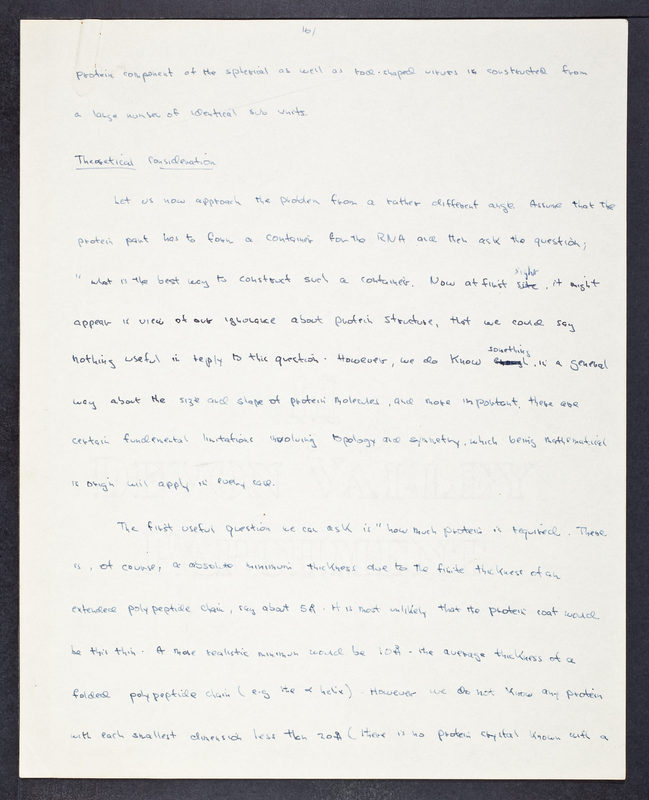 16/
protein component of the spherical as well as rod-shaped viruses is constructed from
a large number of identical sub units.
Theoretical Consideration
Let us now approach the problem from a rather different angle. Assume that the
protein part has to form a container for the RNA and then ask the question;
" what is the best way to construct such a container. Now at first site sight, it might
appear in view of our ignorance about protein structure, that we could say
nothing useful in reply to this question. However, we do know something, in a general
way about the size and shape of protein molecules, and more important, there are
certain fundamental limitations involving topology and symmetry, which being mathematical
in origin will apply in every case.
The first useful question we can ask is "how much protein is required. There
is, of course, a absolute minimum thickness due to the finite thickness of an
extended polypeptide chain, say about 5Å. It is most unlikely that the protein coat would
be this thin. A more realistic minimum would be 10Å - the average thickness of a
folded polypeptide chain (e.g the α helix). However we do not know any protein
with each smallest dimension less than 20Å (there is no protein crystal known with a